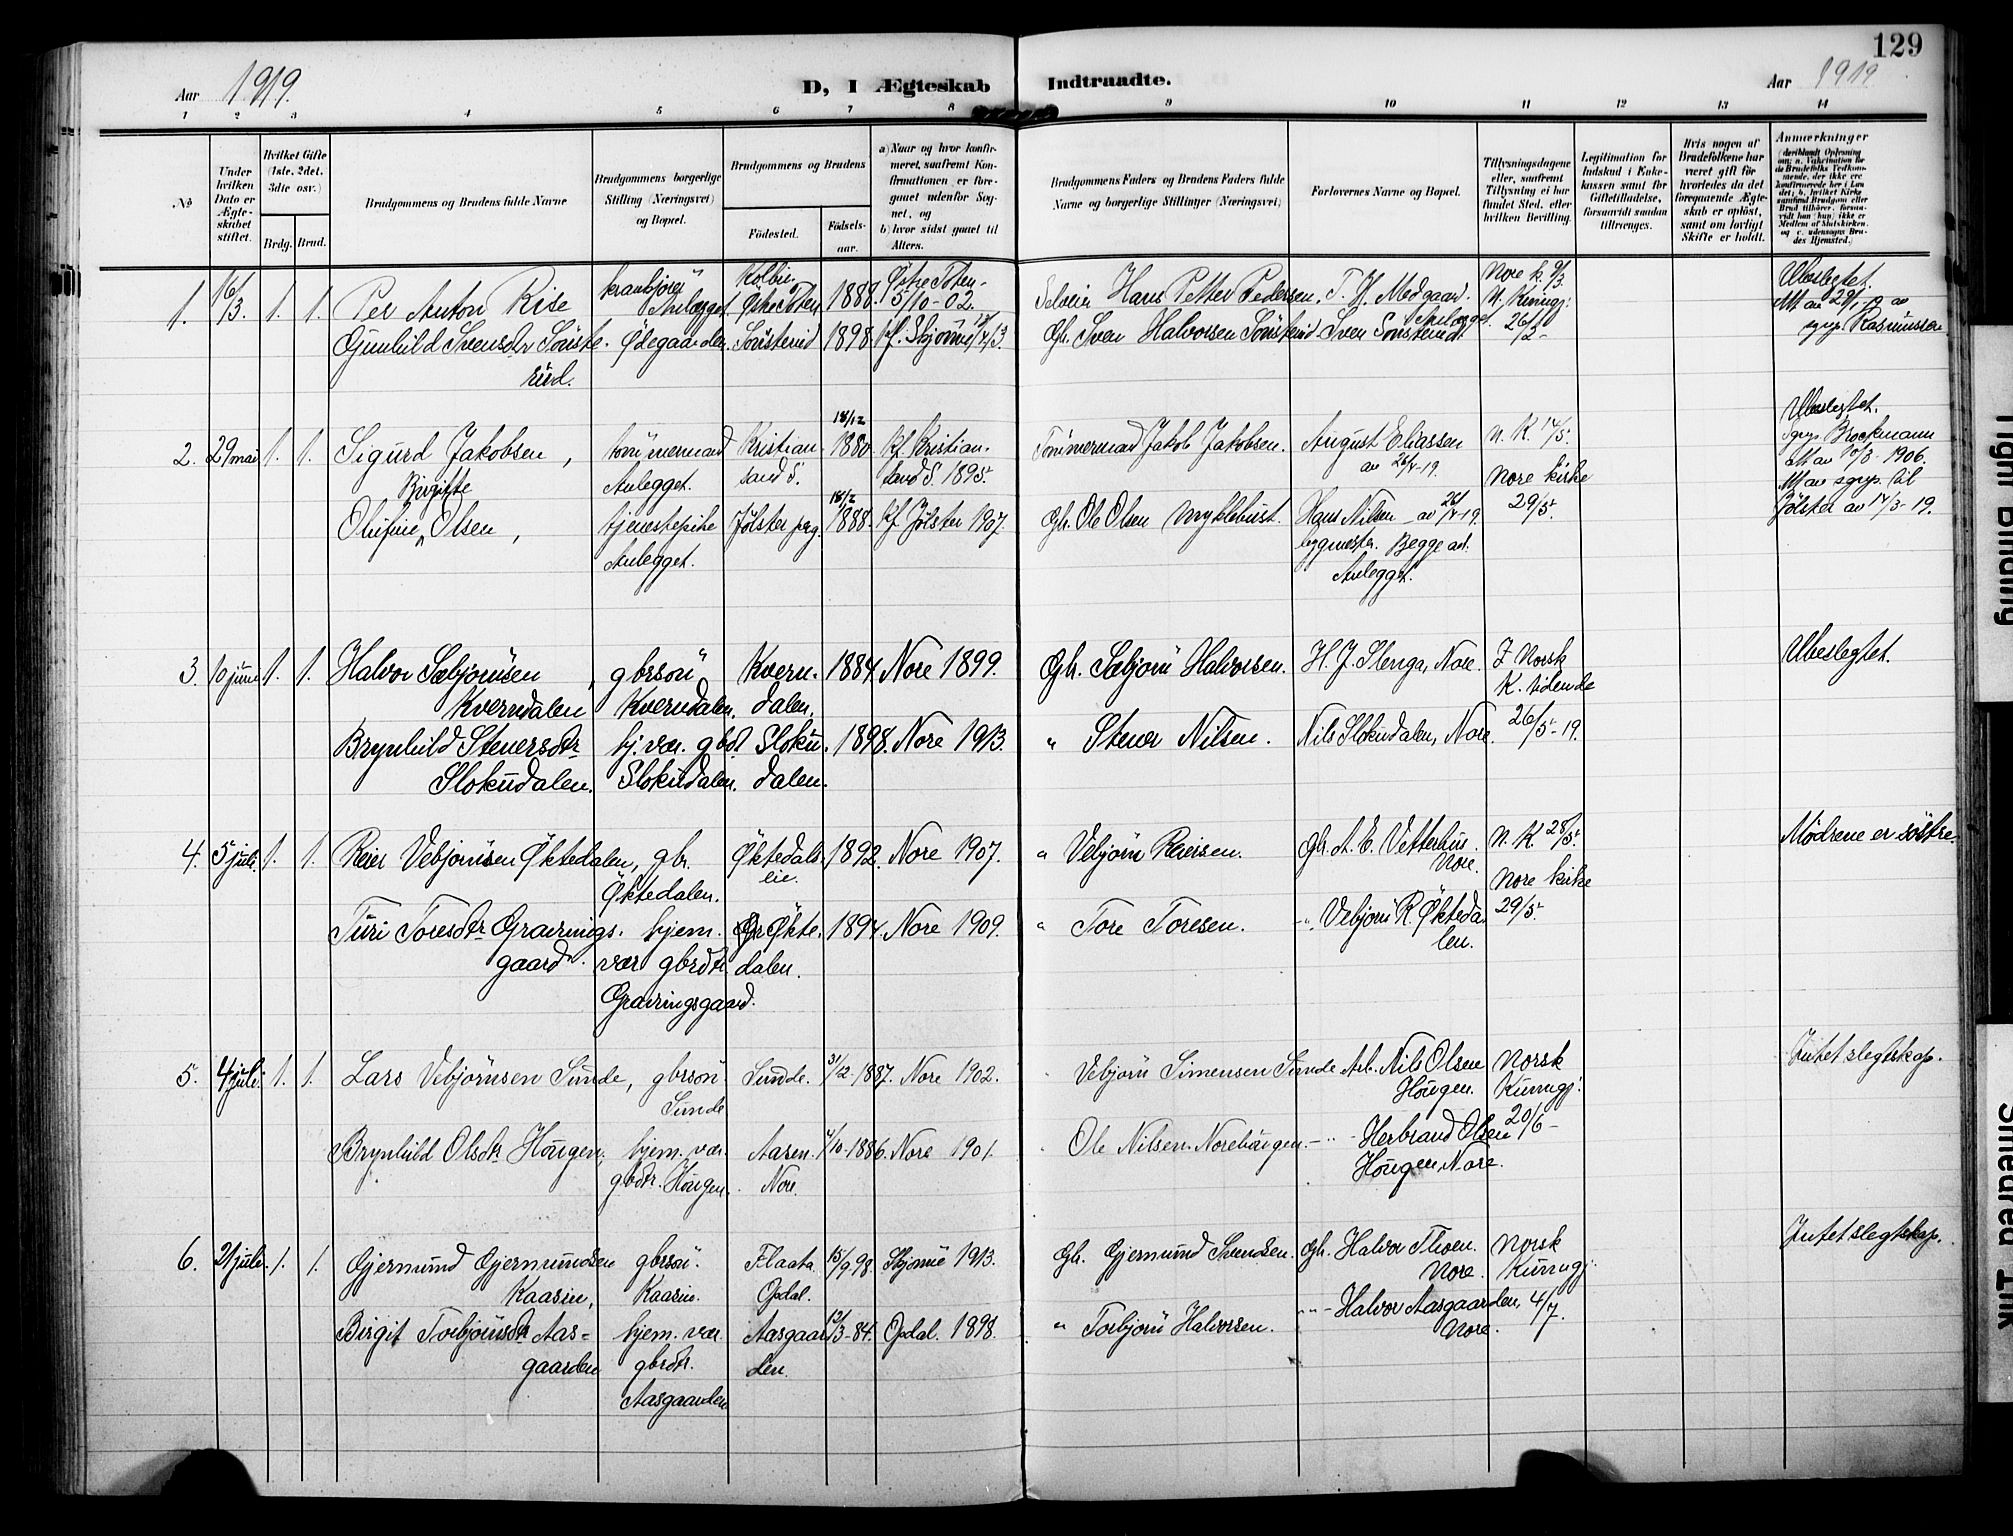 129
Aar 1919.
D, I Ægteskab Indtraadte.
Aar 1919.
1 2 3 4 5 6 7 8 9 10 11 12 13 14
No
Under hvilken Dato er Ægteskabet stiftet.
Hvilket Gifte (1ste, 2det, 3die osv.)
Brdg. Brud.
Brudgommens og Brudens fulde Navne
Brudgommens borgerlige Stilling (Næringsvei) og Bopæl.
Brudgommens og Brudens
Fødested.
Fødselsaar.
a) Naar og hvor konfirmeret, saafremt Konfirmationen er foregaaet udenfor Sognet, og
b) hvor sidst gaaet til Alters.
Brudgommens Faders og Brudens Faders fulde Navne og borgerlige Stillinger (Næringsvei)
Forlovernes Navne og Bopæl.
Tillysningsdagene eller, saafremt Tillysning ei har fundet Sted, efter hvilken Bevilling.
Legitimation for Indskud i Enkekassen samt for Giftetilladelse, forsaavidt saadan tiltrænges.
Hvis nogen af Brudefolkene har været gift før hvorledes da det foregaaende Ægteskab er opløst, samt om lovligt Skifte er holdt.
Anmærkninger
(deriblandt Oplysning om: a. Vakcination for de Brudefolks Vedkommende, der ikke ere konfirmerede her i Landet; b. hvilket Kirkesamfund Brudgom eller Brud tilhører, forsaavidt han (hun) ikke er Medlem af Statskirken, og c. udensogns Brudes Hjemsted.)
1. 16/3. 1. 1. Per Anton Rise
Anlegget. Kolbu Østre Toten 1888. Østre Toten 5/10-02.
Hans Petter Pedersen, T. H. Medgaard. Anlegget.
Nore k. 9/3. N. Kunngj. 26/2-
Ubeslegtet. Att av 29/1-19 av sgpr. Rasmussen
Gunhild Svensdr Sønsterud. Ødegaarden. Sønsterud 1898. Kf. Skjønne 13
Gbr. Sven Halvorsen Sønsterud. Sven Sønsterud.
2. 29 mai 1. 1. Sigurd Jakobsen, tømmermand Anlegget. Kristiansand S. 18/12 1880. Kf. Kristiansand S. 1895.
Tømmermand Jakob Jakobsen. August Eliassen av 26/4-19.
N. K. 14/5. Nore kirke 29/5.
Ubeslegtet. Sgpr. Brockmann att av 10/3 1906. Att av sgpr. til Jølster av 14/3-19.
Olufine Birgitte Olsen, tjenestepike Anlegget. Jølster pgd. 18/2 1888. Kf. Jølster 1907.
Gbr. Ole Olsen Myklebust. Hans Nilsen av 26/4-19. bygmester. Begge ad. Anlegget.
3. 10 juni 1. 1. Halvor Sæbjørnsen Kverndalen, gbrsøn Kverndalen. Kverndalen. 1884. Nore 1899.
Gbr. Sæbjørn Halvorsen. H. J. Stenga, Nore.
I Norsk K. tidende 26/5-19.
Ubeslegtet.
Brynhild Stenersdr Slokudalen. hj. vær. gbd. Slokudalen. Slokudalen. 1898. Nore 1913.
" Stener Nilsen. Nils Slokudalen, Nore.
4. 5 juli. 1. 1. Reier Vebjørnsen Øktedalen, gbr. Øktedalen. Øktedals eie. 1892. Nore 1907.
" Vebjørn Reiersen. Gbr. A. E. Vetterhus Nore.
N. K. 28/5. Nore kirke 29/5.
Mødrene er søstre.
Turi Toresdr Gravningsgaard. hjem. vær gbrdtr. Gravningsgaard. Øktedalen. 1894. Nore 1909.
" Tore Toresen. -"- Vebjørn R. Øktedalen.
5. 4 juli. 1. 1. Lars Vebjørnsen Sunde, gbrsøn Sunde Sunde. 31/12-1887. Nore 1902.
Vebjørn Simensen Sunde Arb. Nils Olsen Hougen.
Norsk Kunngj. 20/6-
Intet slegtskap.
Brynhild Olsdtr Hougen, hjem. vær gbdtr. Hougen. Aasen. Nore. 4/10-1886. Nore 1901.
Ole Nilsen Norebøygen. -"- Herbrand Olsen Hougen, Nore.
6. 21 juli. 1. 1. Gjermund Gjermundsen Kaasin, gbrsøn. Kaasin. Flaata Opdal. 15/9 98. Skjønne 1913.
Gbr. Gjermund Svendsen. Gbr. Halvor Thoen. Nore.
Norsk Kunngj. 4/7.
Intet slegtskap.
Birgit Torbjørnsdtr Aasgaarden hjem. vær gbrdtr. Aasgaarden Aasgaarden. 13/3-84. Opdal. 1898.
" Torbjørn Halvorsen. "" - Halvor Aasgaarden, Nore.